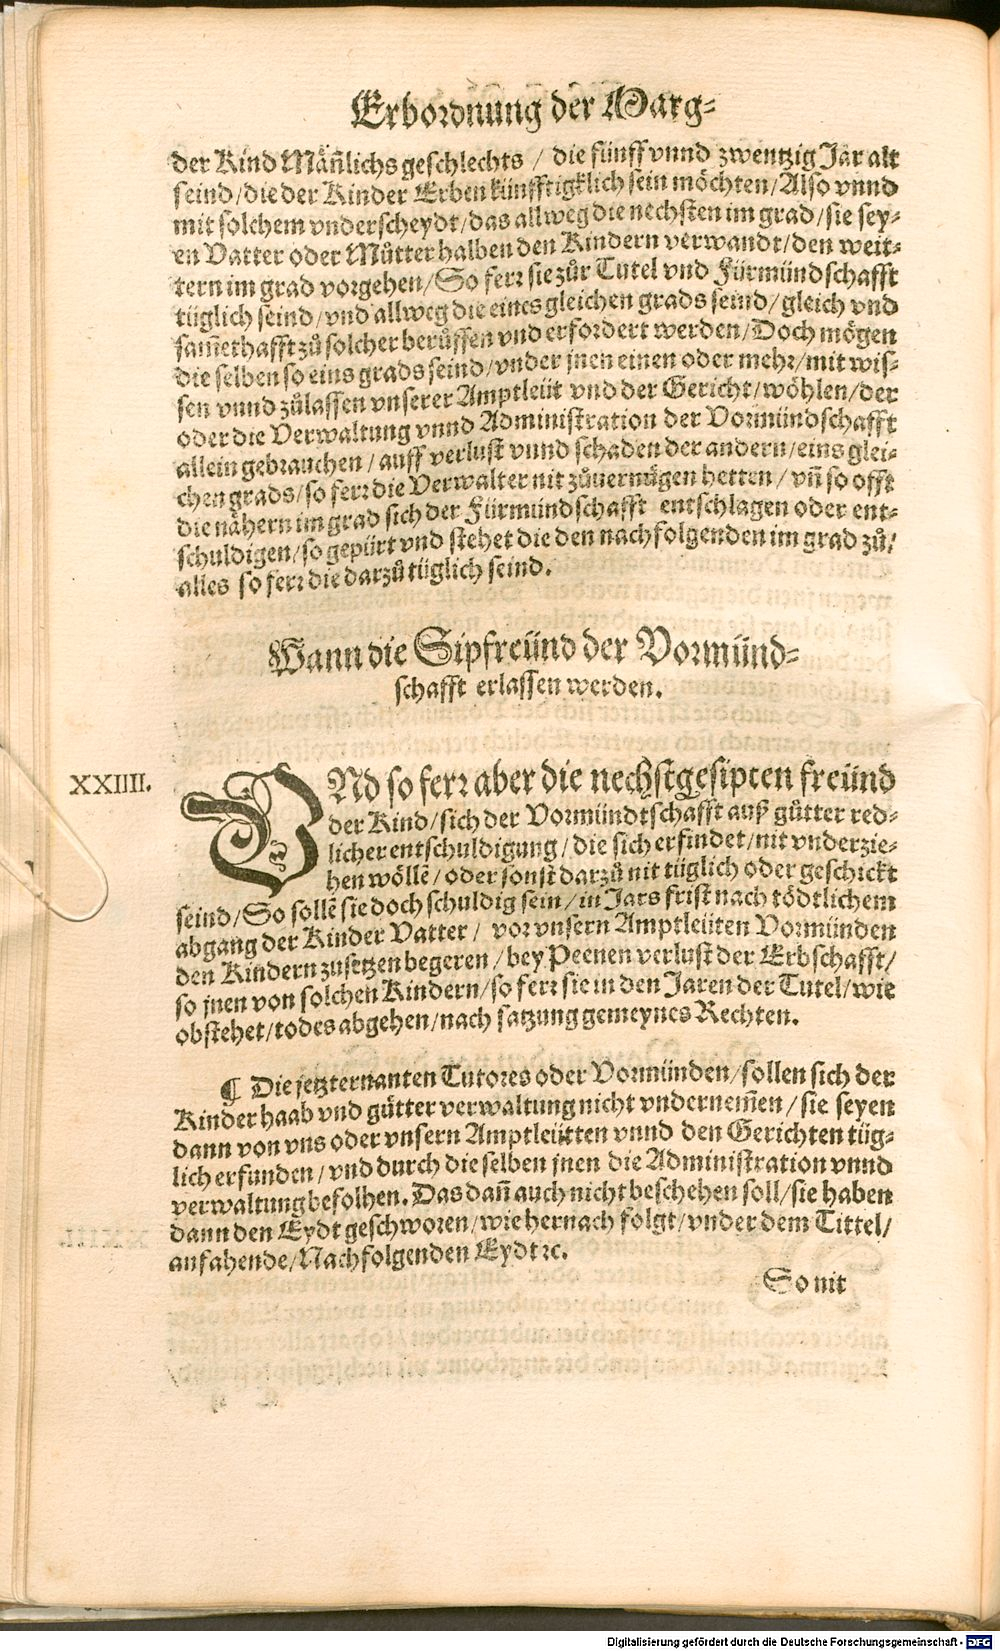 Erbordnung der Marg⸗
der Kind Mañlichs geschlechts / die fünff vnnd zwentzig Jar alt
seind/die der Kinder Erben künfftigklich sein möchten/Also vnnd
mit solchem vnderscheydt/das allweg die nechsten im grad/sie sey⸗
en Vatter oder Můtter halben den Kindern verwandt/den weit⸗
tern im grad vorgehen/So ferr sie zůr Tutel vnd Fürmündschafft
tüglich seind/vnd allweg die eines gleichen grads seind/gleich vnd
sam̃ethafft zů solcher berůffen vnd erfordert werden/Doch mögen
die selben so eins grads seind/vnder jnen einen oder mehr/mit wis⸗
sen vnnd zůlassen vnserer Amptleüt vnd der Gericht/wöhlen/der
oder die Verwaltung vnnd Administration der Vormündschafft
allein gebrauchen / auff verlust vnnd schaden der andern/eins glei⸗
chen grads/so ferr die Verwalter nit zůuermügen hetten / vñ so offt
die nähern im grad sich der Fürmündschafft entschlagen oder ent⸗
schuldigen/so gepürt vnd stehet die den nachfolgenden im grad zů/
alles so ferr die darzů tüglich seind.
Wann die Sipfreünd der Vormünd⸗
schafft erlassen werden.
XXIIII.
VNd so ferr aber die nechstgesipten freünd
der Kind/sich der Vormündtschafft auß gůtter red⸗
licher entschuldigung/die sich erfindet/nit vnderzie⸗
hen wöllẽ/oder sonst darzů nit tüglich oder geschickt
seind/So sollẽ sie doch schuldig sein/in Jars frist nach tödtlichem
abgang der Kinder Vatter / vor vnsern Amptleüten Vormünden
den Kindern zusetzen begeren/bey Peenen verlust der Erbschafft/
so jnen von solchen Kindern/so ferr sie in den Jaren der Tutel/wie
obstehet/todes abgehen/nach satzung gemeynes Rechten.
¶ Die jetzternanten Tutores oder Vormünden/sollen sich der
Kinder haab vnd gütter verwaltung nicht vndernem̃en / sie seyen
dann von vns oder vnsern Amptleütten vnnd den Gerichten tüg⸗
lich erfunden/vnd durch die selben jnen die Administration vnnd
verwaltung befolhen. Das dañ auch nicht beschehen soll/sie haben
dann den Eydt geschworen/wie hernach folgt/vnder dem Tittel/
anfahende/Nachfolgenden Eydt ꝛc.
So nit
Digitalisierung gefördert durch die Deutsche Forschungsgemeinschaft - DFG